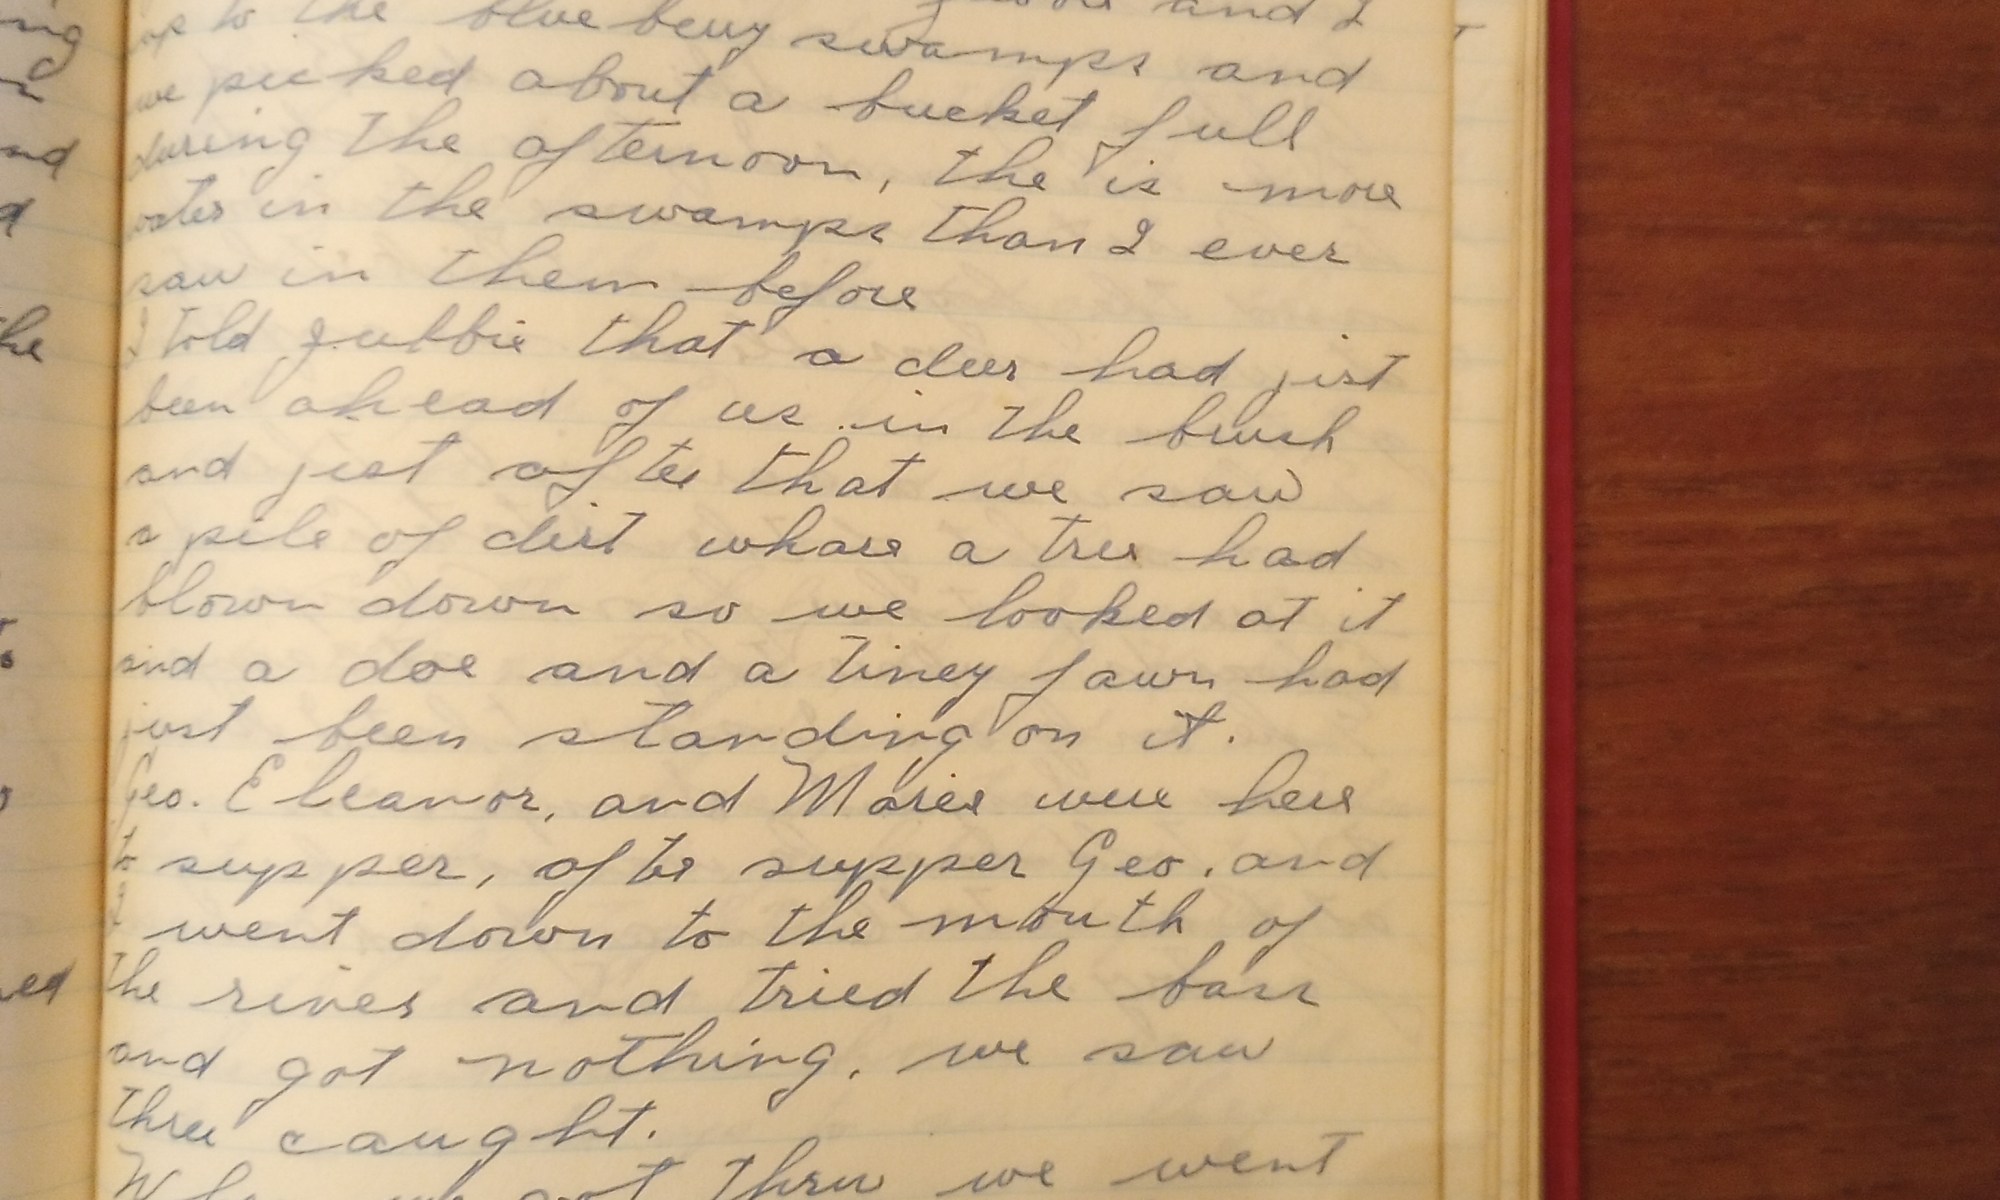 and I
up to the blue beruy swamps and
we picked about a bucket full
during the afternoon, the is more
water in the swamps than I ever
saw in them before
I told Jubbie that a deer had jist
been ahead of us in the brush
and just after that we saw
a pile of dirt whare a tree had
blown down so we looked at it
and a doe and a tiney fawn had
just been standing on it.
Geo. Eleanor, and Marie were here
to supper, after supper Geo. and
I went down to the mouth of
the river and tried the bass
and got nothing. we saw
three caught.
we got thru we went